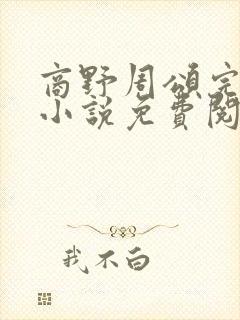 商野周頌完
小說免費閱
我不白